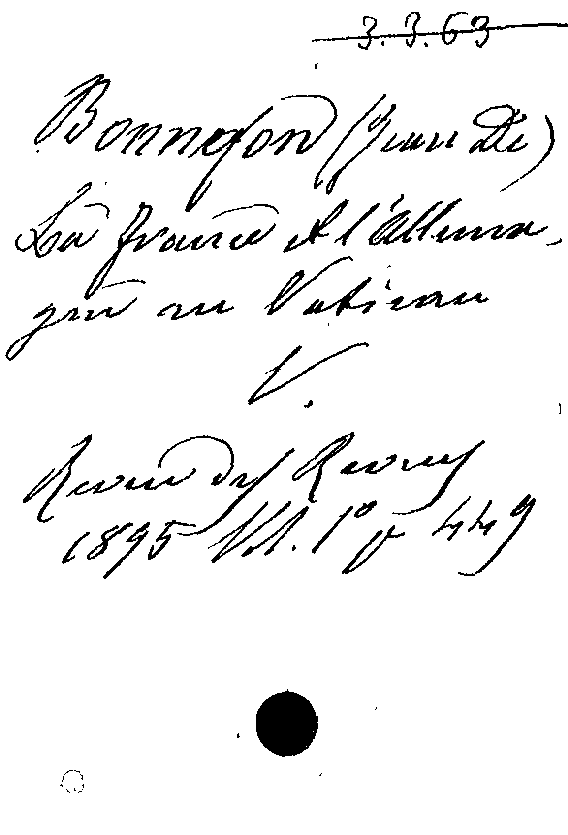 3.3.63
Bonnefon (Jean De)
La France et l'Allema-
gne au Vatican
V.
Revue des Revues
1895 Vol. 1º p 449